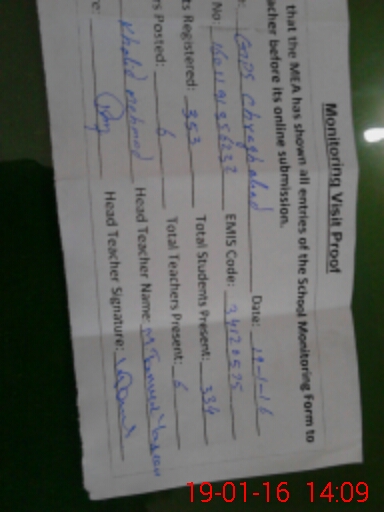 Monitoring Visit Proof
that the MEA has shown all entries of the School Monitoring Form to
acher before its online submission.
e: GGPS Date: 19-1-16
No: EMIS Code: 34120575
ts Registered: 353 Total Students Present: 334
rs Posted: 6 Total Teachers Present: 6
Khalid Mehmood Head Teacher Name:
re: Head Teacher Signature:
19-01-16 14:09